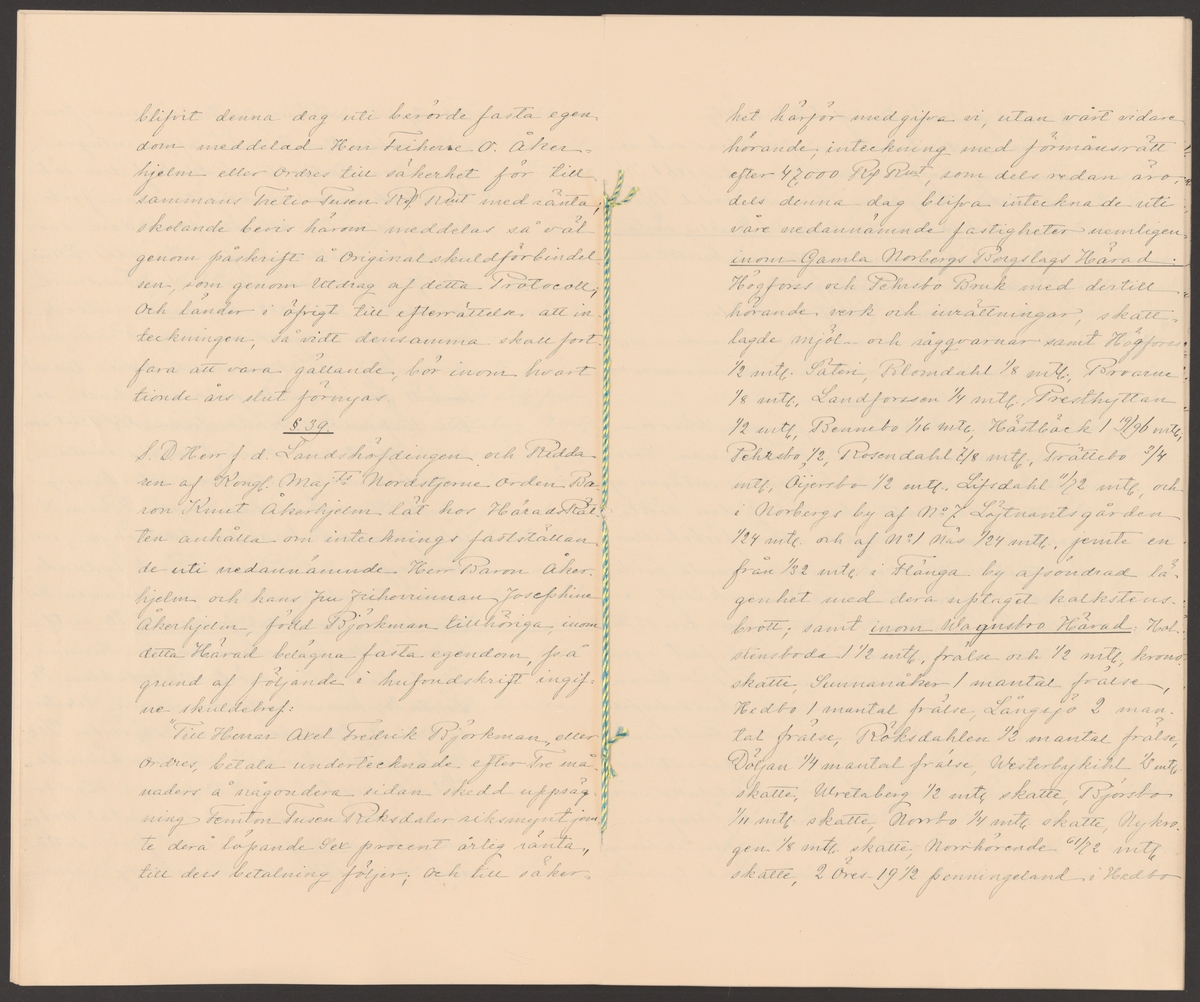 blifvit denna dag uti berörde fasta egen
dom meddelad Herr Friherre O. Åker=
hjelm eller ordres till säkerhet för till
sammans Tretio Tusen Rd Rmt med ränta;
skolande bevis härom meddelas så väl
genom påskrift å Original skuldförbindel
sen, som genom Utdrag af detta Protocoll;
Och länder i öfrigt till efterrättelse att in
teckningen, så vidt densamma skall fort
fara att vara gällande, bör inom hvart
tionde års slut förnyas.
§ 39.
S. D Herr f. d. Landshöfdingen och Ridda
ren af Kongl. Majts Nordstjerne orden Ba
ron Knut Åkerhjelm lät hos HäradsRät
ten anhålla om intecknings fastställan
de uti nedannämnde Herr Baron Åker
hjelm och hans Fru Friherrinnan Josephine
Åkerhjelm, född Björkman tillhöriga, inom
detta Härad belägna fasta egendom, på
grund af följande i hufvudskrift ingif=
ne skuldebref:
"Till Herrar Axel Fredrik Björkman, eller
ordres, betala undertecknade efter Tre må
naders å någondera sidan skedd uppsäg
ning Femton Tusen Riksdaler riksmynt jem
te derå löpande Sex procent årlig ränta,
till dess betalning följer; Och till säker=
het härför medgifva vi, utan vårt vidare
hörande, inteckning med förmånsrätt
efter 47,000 Rd Rmt, som dels redan äro,
dels denna dag blifva intecknade uti
våre nedannämnde fastigheter nemligen
inom Gamla Norbergs Bergslags Härad:
Högfors och Pehrsbo Bruk med dertill
hörande verk och inrättningar, skatt=
lagde mjöl och sågqvarnar samt Högfors
1/2 mtl. Säteri, Blomdahl 1/8 mtl, Broarne
1/8 mtl, Landforssen 1/4 mtl. Presthyttan
1/2 mtl, Bennebo 1/16 mtl, Hästbäck 1 19/96 mtl,
Pehrsbo 1/2, Rosendahl 2/8 mtl, Trättebo 3/4
mtl, Öijersbo 1/2 mtl. Lifsdahl 11/72 mtl, och
i Norbergs by af No 7 Löjtnantsgården
1/24 mtl. och af No 1 Näs 1/24 mtl. jemte en
från 1/32 mtl i Flänga by afsöndrad lä=
genhet med derå uptaget kalkstens=
brott; samt inom Wagnsbro Härad: Hal
stensboda 1 1/2 mtl. frälse och 1/2 mtl, krono
skatte, Sunnanåker 1 mantal frälse,
Hedbo 1 mantal frälse, Långsjö 2 man=
tal frälse, Röksdahlen 1/2 mantal frälse,
Döljan 1/4 mantal frälse, Westerbykihl mtl.
skatte, Wretaberg 1/2 mtl skatte, Björsbo
1/11 mtl skatte, Norrbo 1/4 mtl skatte, Nykro
gen 1/8 mtl. skatte, Norrhörende 61/72 mtl
skatte, 2 Öres 19 1/2 penningeland i Hedbo